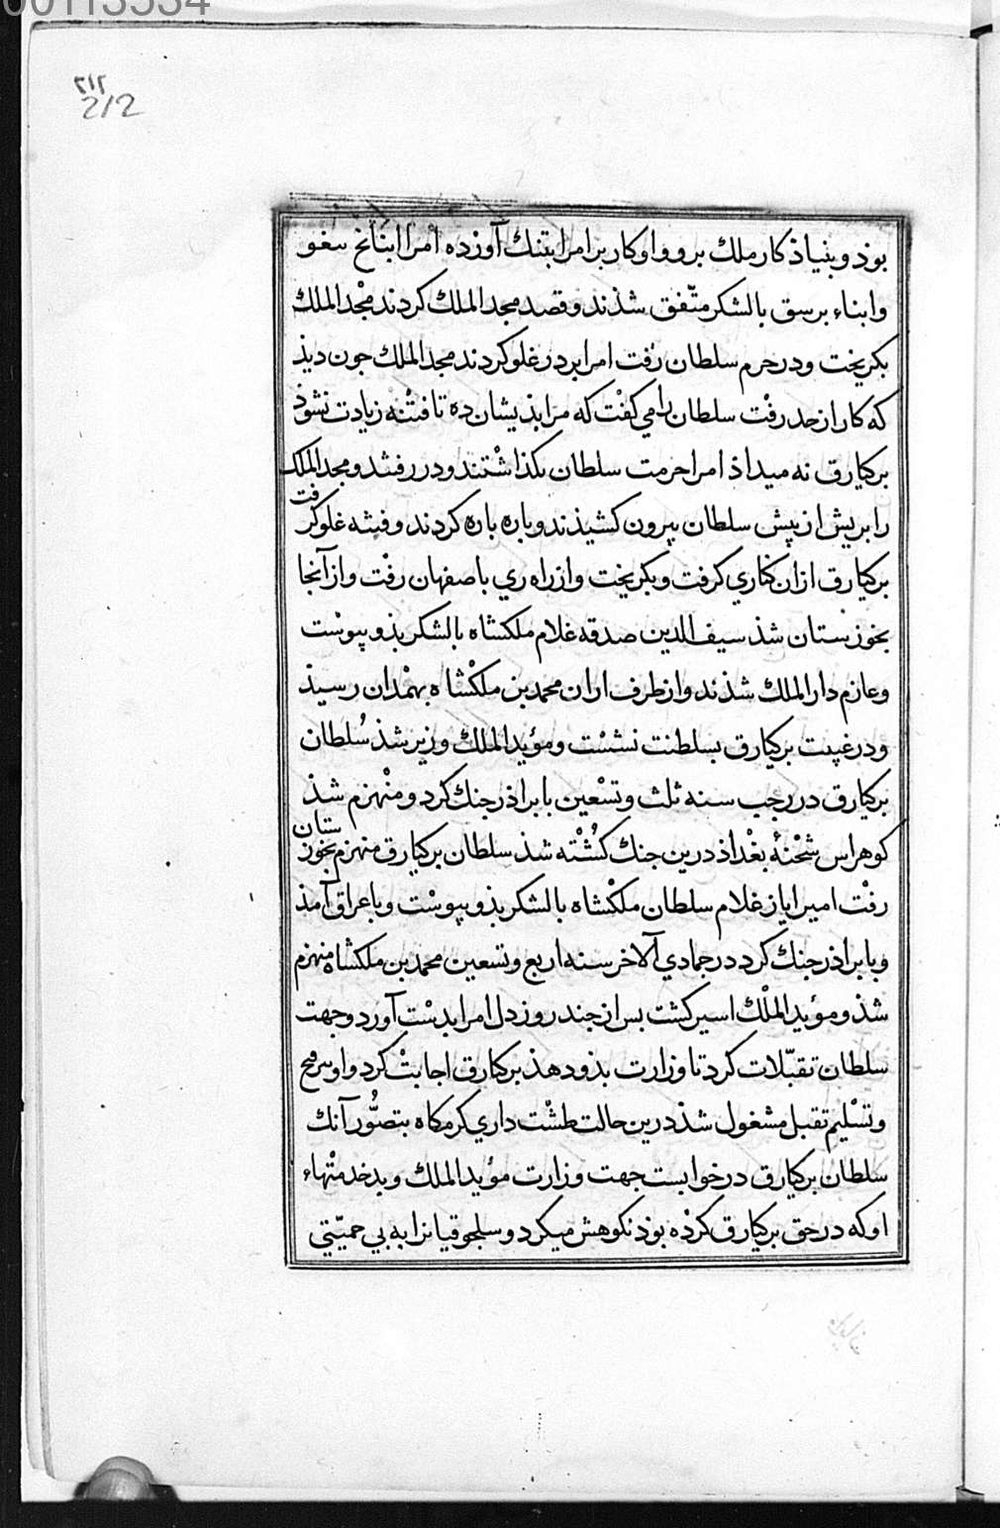 00113534
۲۱۲
212
بوذ و بنیاذ کار ملك برو و او کار بر امرا بتنك آورده امرا اینانخ سغو
و ابناء برسق با لشکر متّفق شذند و قصد مجد الملك کردند مجد الملك
بکریخت و در حرم سلطان رفت امرا بر در غلو کردند مجد الملك جون دیذ
که کار از حد رفت سلطان را می کفت که مرا بذیشان ده تا فتنه زیادت نشوذ
برکیارق نه میداذ امرا حرمت سلطان بکذاشتند و در رفتند و مجد الملك
را بریش از پیش سلطان بیرون کشیذند و باره باره کردند و فتنه غلو کرفت
برکیارق ازان کناری کرفت و بکریخت و از راه ری باصفهان رفت و از آنجا
بخوزستان شذ سیف الدین صدقه غلام ملکشاه با لشکر بذو پیوست
و عازم دار الملك شذند و از طرف اران محمد بن ملکشاه بهمدان رسیذ
و در غیبت برکیارق بسلطنت نشست و مؤید الملك وزیر شذ سُلطان
برکیارق در رجب سنه ثلث و تسعین با براذر جنك کرد و منهزم شذ
کوهراس شحنهٔ بغداذ درین جنك کُشته شذ سلطان برکیارق منهزم بخوزستان
رفت امیر ایاز غلام سلطان ملکشاه با لشکر بذو پیوست و با عراق آمذ
و با براذر جنك کرد در جمادی الآخر سنه اربع و تسعین محمد بن ملکشاه منهزم
شذ و مؤید الملك اسیر کشت بس از جند روز دل امرا بدست آورد و جهت
سلطان تقبّلات کرد تا وزارت بذو دهذ برکیارق اجابت کرد و او بر
و تسلیم تقبل مشغول شذ درین حالت طشت داری کرمکاه بتصوُّر آنك
سلطان برکیارق در خوابست جهت وزارت مؤید الملك و بدخدمتهاء
او که در حق برکیارق کرده بوذ نکوهش میکرد و سلجوقیانرا به بی حمیّتی